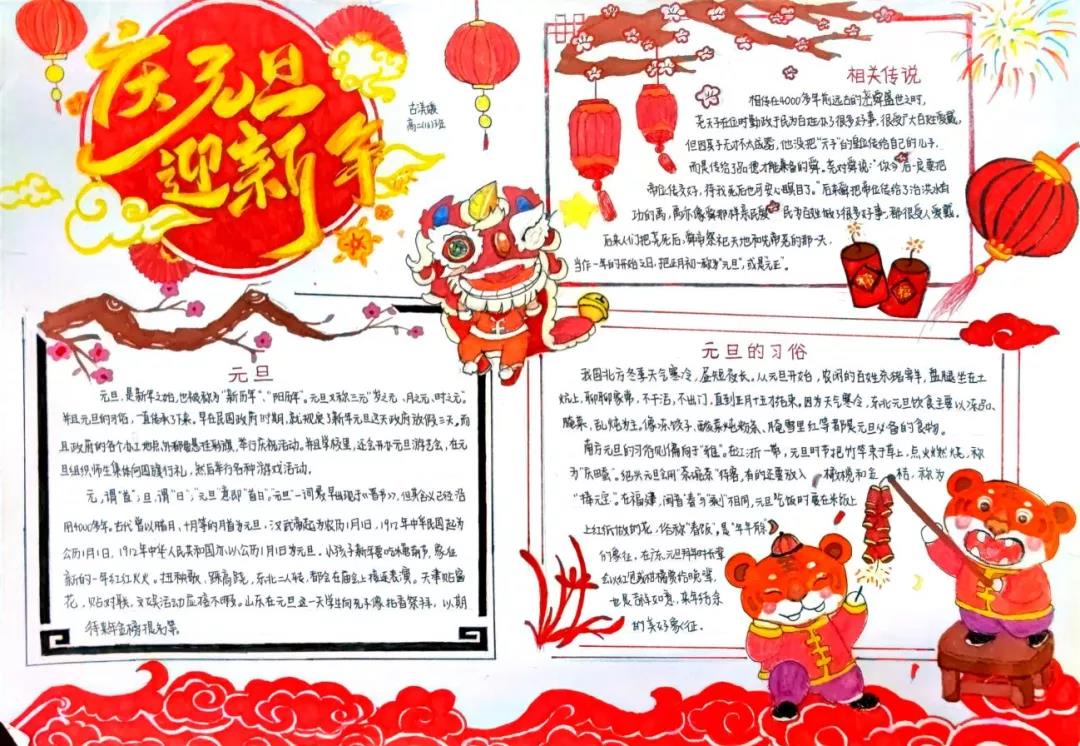 庆元旦
迎新年
古淇媛
高二(16)班
相关传说
相传在4000多年前远古的尧舜盛世之时,
尧天子在位时勤政于民为百姓办了很多好事,很受广大百姓爱戴,
但因其子无才不太成器,他没把"天子"的皇位传给自己的儿子.
而是传给了品德才能兼备的舜。尧对舜说:"你今后一定要把
帝位传交好,待我死后也可安心瞑目了。"后来舜把帝位传给了治洪水有
功的禹,禹亦像舜那样亲民爱民为百姓做了很多好事,都很受人爱戴。
后来人们把尧死后,舜帝祭祀天地和先帝尧的那一天,
当作一年的开始之日,把正月初一称为"元旦",或是"元正"。
元旦
元旦,是新年之始,也被称为"新历年"、"阳历年"。元旦又称三元"岁之元、月之元、时之元。"
并且元旦的习俗,一直传承了下来。早在民国政府时期,就规定了新年元旦这天政府放假三天。而
且政府的各个办公地点,外部悬挂彩旗,举行庆祝活动。并且学校里,还会开办元旦游艺会,在元
旦组织师生集体向国旗行礼,然后举行各种游戏活动。
元,谓"首";旦,谓"日";"元旦"意即"首日","元旦"一词最早出现于《晋书》,但其含义已经沿
用4000多年。古代曾以腊月、十月等的月首为元旦,汉武帝起为农历1月1日,1912年中华民国起为
公历1月1日,1912年中华人民共和国亦以公历1月1日为元旦。小孩子新年要吃冰糖葫芦,象征
新的一年红红火火。扭秧歌、踩高跷、东北二人转,都会在庙会上接连表演。天津贴窗
花,贴对联,文娱活动应接不暇。山东在元旦这一天学生向孔子像拈香祭拜,以期
待来年金榜提名等。
元旦的习俗
我国北方冬季天气寒冷,昼短夜长。从元旦开始,农闲的百姓杀猪宰羊,盘腿坐在土
炕上,聊聊家常,不干活,不出门,直到正月十五才结束。因为天气寒冷,东北元旦饮食主要以冻品、
腌菜,乱炖为主。像冻饺子,酸菜炖粉条、腌雪里红等都是元旦必备的食物。
南方元旦的习俗则偏向于"雅"。在江浙一带,元旦时节把竹竿夹于车上,点火燃烧,称
为"庆田蚕"。绍兴元旦会用"茶碗茶"待客,有的还要放入橄榄和金桔,称为
"捧元宝"。在福建,闽音"春"与"剩"相同,元旦吃饭时要在米饭上
上红纸做的花,俗称"春饭",是"年年
们象征,在广东元旦拜年时长辈
会以红包或柑橘赏给晚辈,
也是吉祥如意,来年结余
的美好象征.